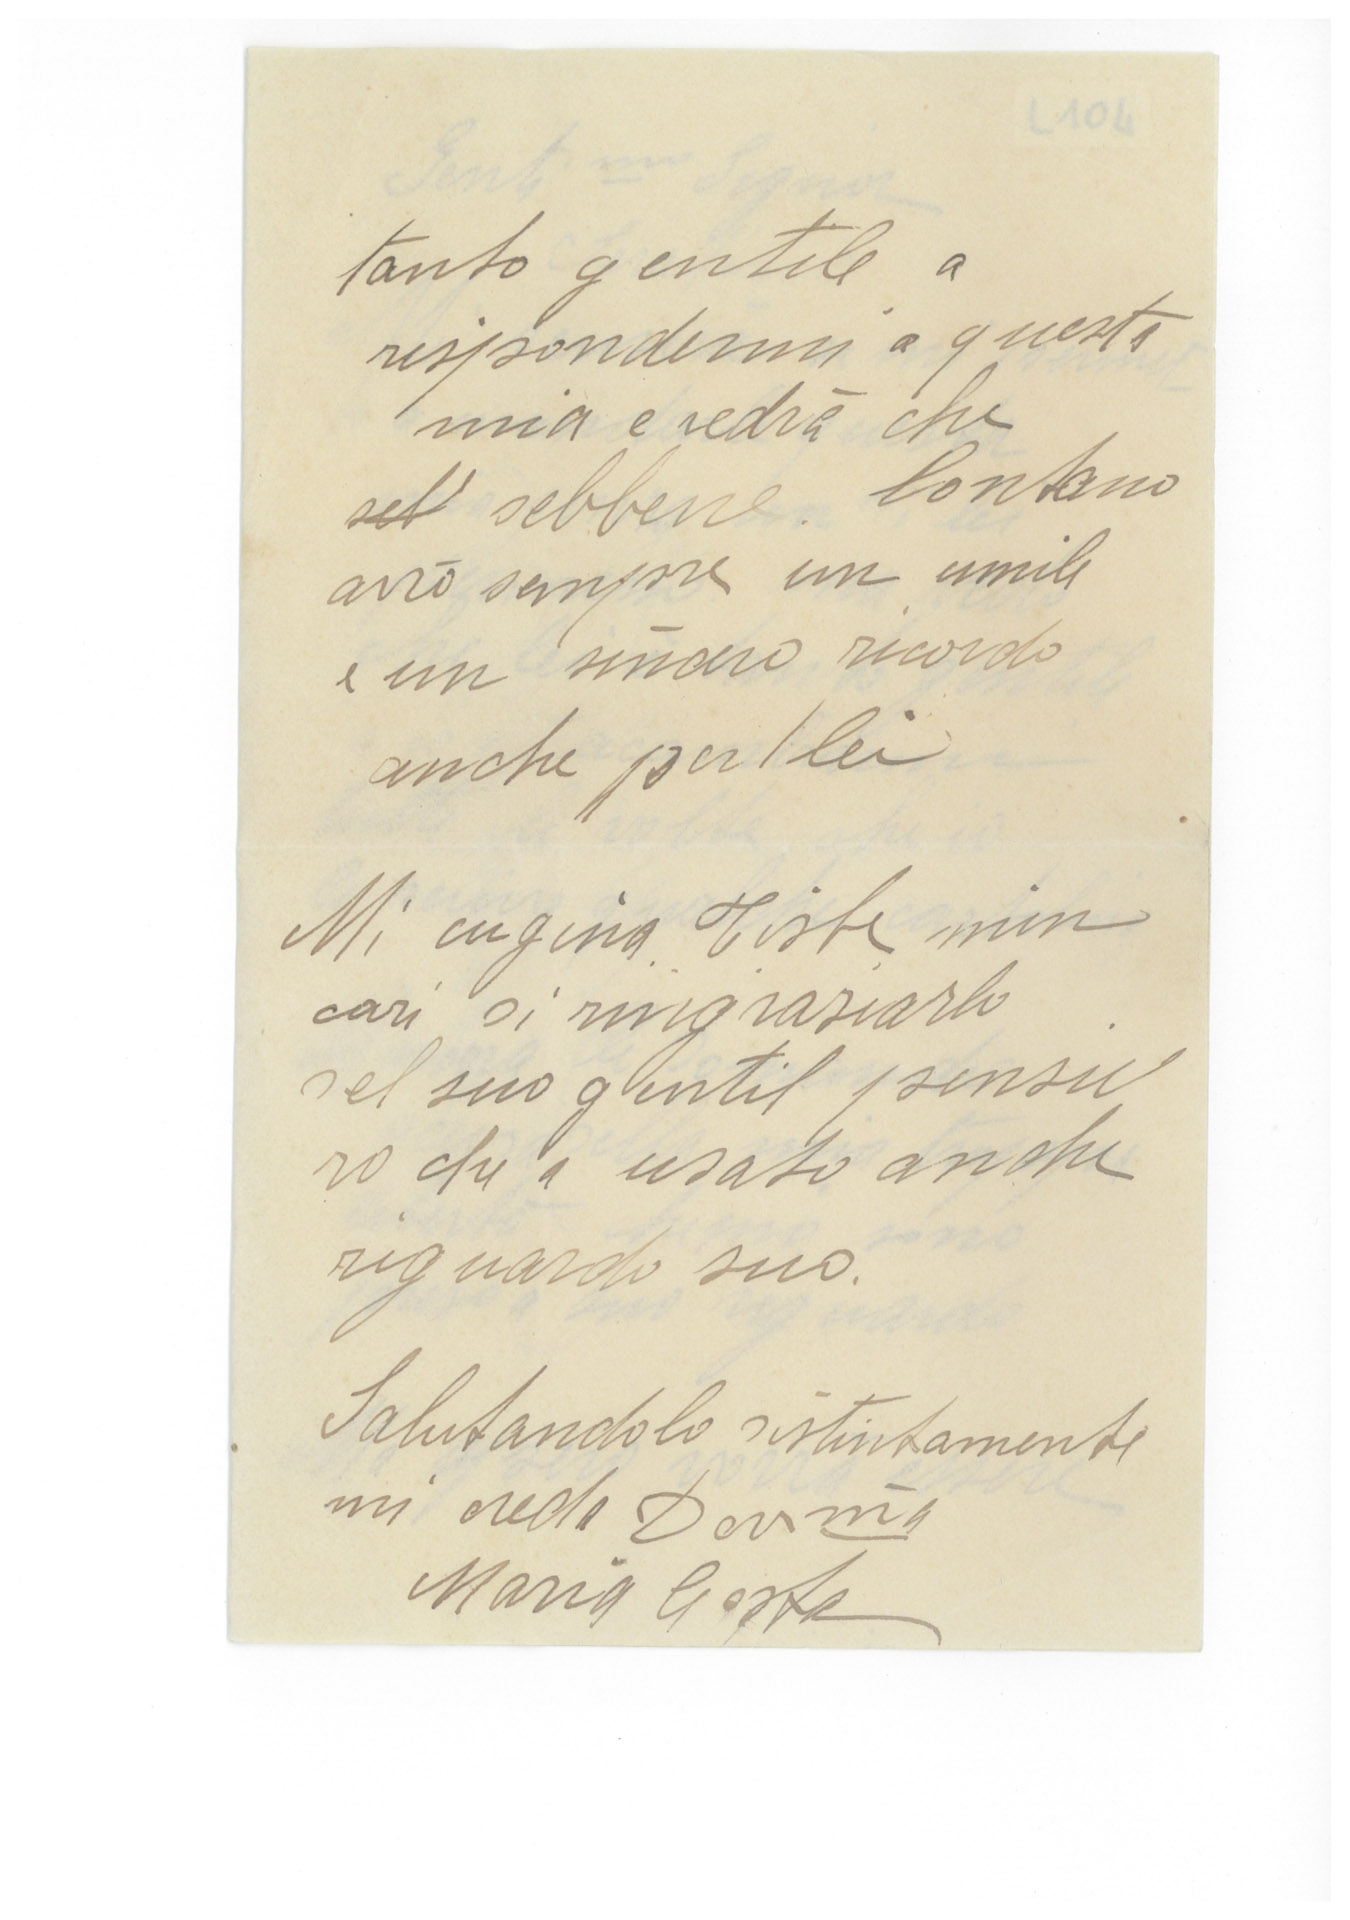 tanto gentile a
rispondermi a questa
mia e vedrà che
sebbene lontano
avrò sempre un umile
e un sincero ricordo
anche per lei
Mi cugina Tisbe m'in
cari di ringraziarlo
del suo gentil pensie
ro che a usato anche
riguardo suo.
Salutandolo distintamente
mi creda Dev ma
Maria Costa